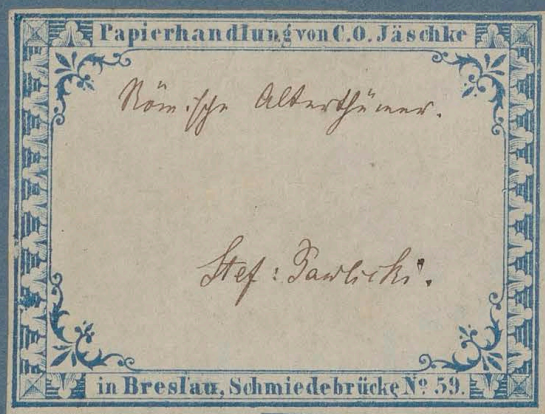 Papierhandlung von C.O. Jäschke
Römische Alterthümer.
Stef: Pawlicki.
in Breslau, Schmiedebrücke No. 59.